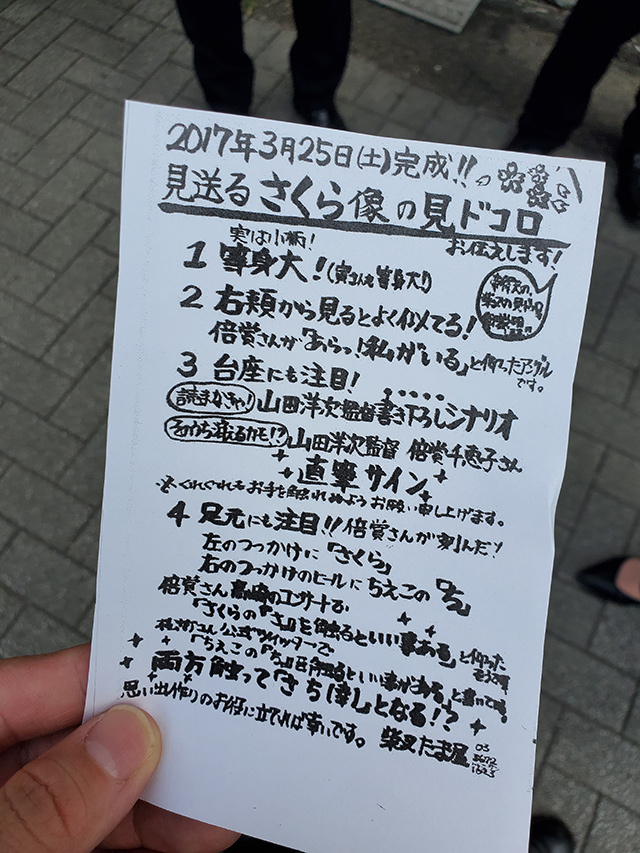 2017年3月25日(土)完成!!
見送るさくら像の見ドコロ
お伝えします!
実は小柄!
1 等身大!(寅さんも等身大!)
2 右頬から見るとよく似てる!
倍賞さんが「あらっ!私がいる」と仰ったアングルです。
3 台座にも注目!
読まなきゃ! 山田洋次監督書き下ろしシナリオ
そのうち消えるかも!? 山田洋次監督 倍賞千恵子さん
直筆サイン
※くれぐれもお手を触れぬようお願い申し上げます。
4 足元にも注目!!倍賞さんが刻んだ!
左のつっかけに「さくら」
右のつっかけのヒールにちえこの「ち」
倍賞さん高崎のコンサートで
「さくらの『さ』を触るといい事ある」と仰った
公式ツイッターで
「ちえこの『ち』を触るといい事がある」と
両方触って「さち(幸)」となる!?
思い出作りのお役に立てれば幸いです。 柴又たま屋
03
3672